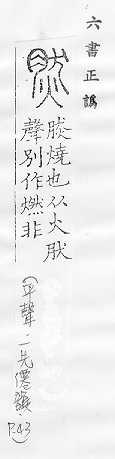 六書正譌
然
燒也从火肰
聲別作燃非
(平聲二先僊韻)
P.43